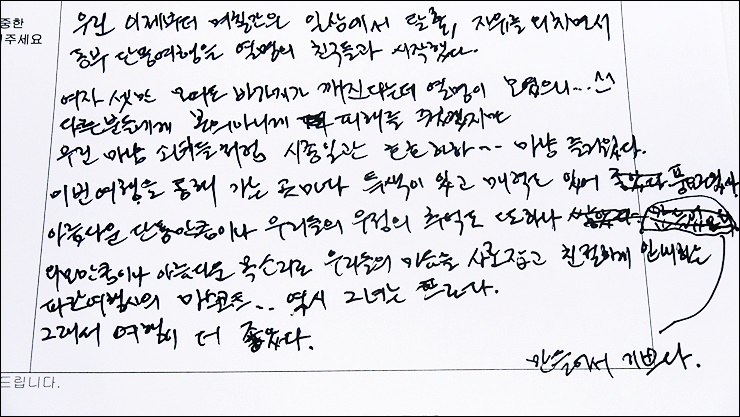 중한
주세요
우린 이제부터 며칠간의 일상에서 탈출, 자유를 외치면서
동부 단풍여행을 열명의 친구들과 시작했다.
여자 셋만 모여도 바가지가 깨진다는데 열명이 모였으니... ^^
다른분들에게 본의아니게 피해를 주었겠지만
우린 마냥 소녀들처럼 시종일관 호호하하~~ 마냥 즐거웠다.
이번여행을 통해 가는 곳마다 특색이 있고 매력도 있어 좋았다
아름다운 단풍만큼이나 우리들의 우정의 추억도 또하나
외모만큼이나 아름다운 목소리로 우리들의 마음을 사로잡고 친절하게 안내하는
파란여행사의 마스코트.. 역시 그녀는 프로다.
그래서 여행이 더 좋았다.
만들어서 기쁘다.
드립니다.